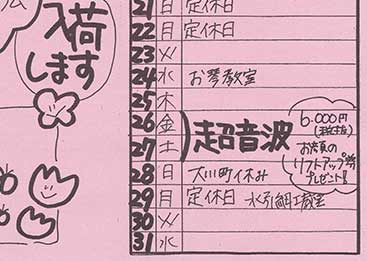 入荷
します
21 日 定休日
22 月 定休日
23 火
24 水 お琴教室
25 木
26 金
27 土
超音波
6.000円
(税抜)
お顔の
リフトアップ券
プレゼント!!
28 日 大川町休み
29 月 定休日 水引細工教室
30 火
31 水